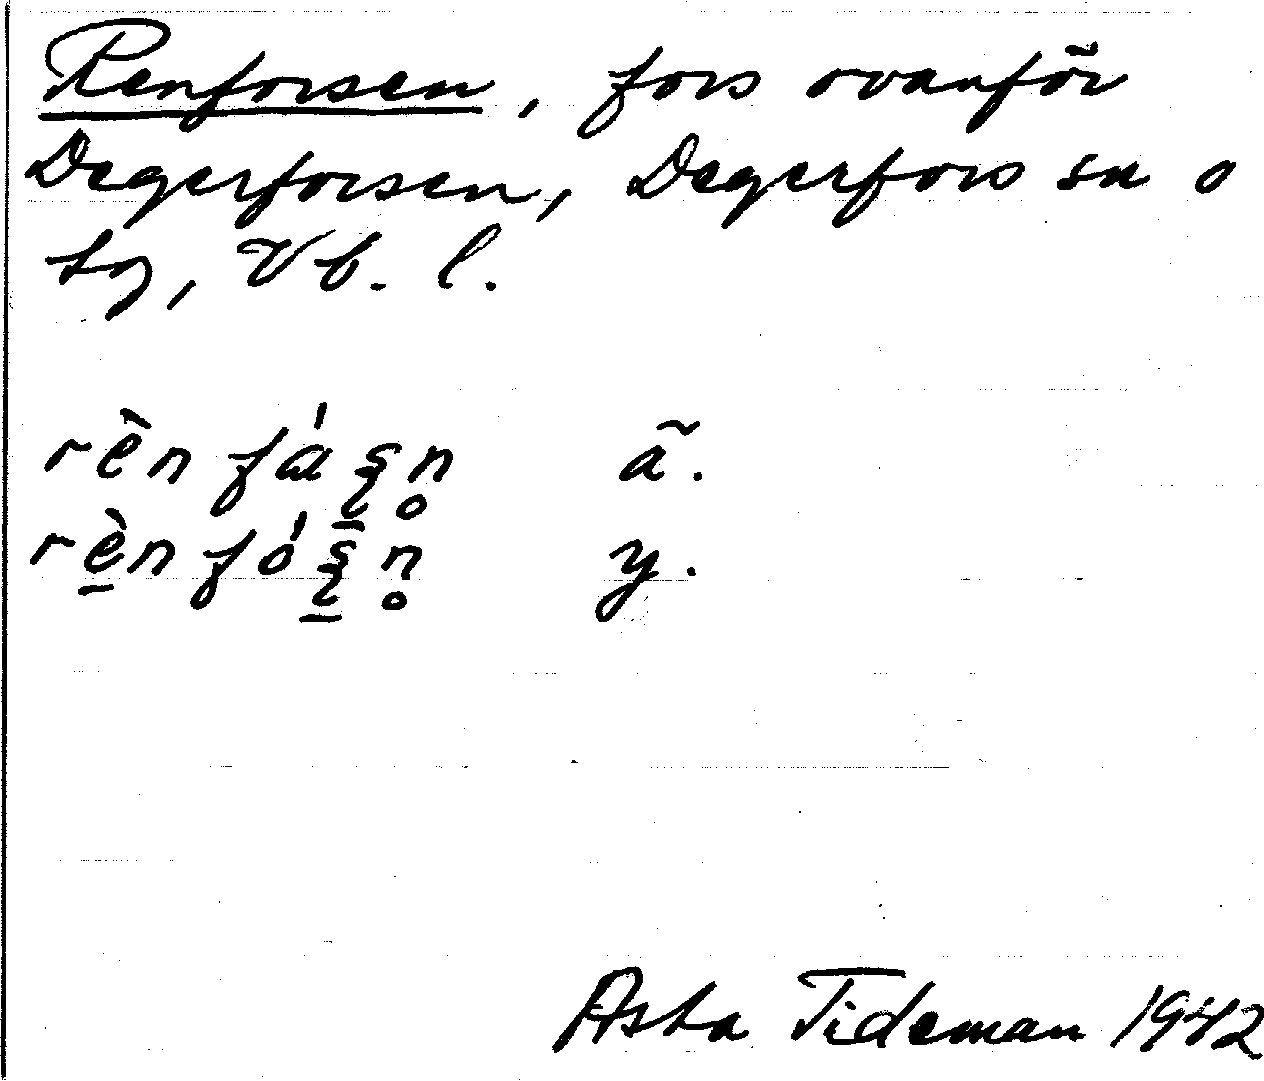 Renforsen, fors ovanför
Degerforsen, Degerfors sn o
tg, Vb. l.
rèn fá ʂn̥ ã.
rèn fó ʂn̥ y.
Asta Tideman 1942